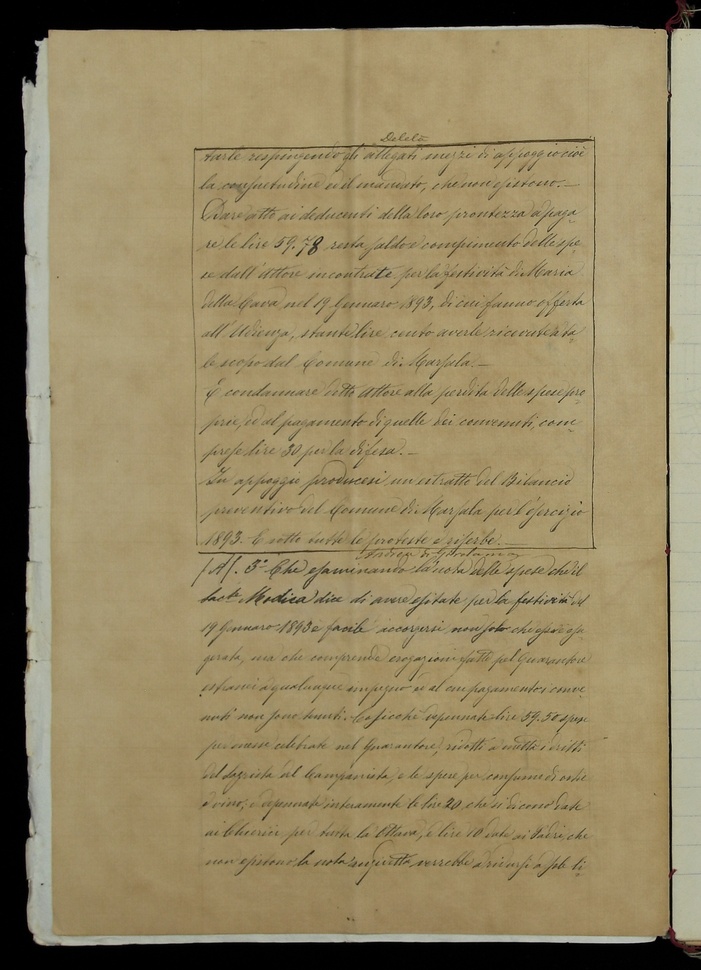 Deleta
tarle respingendo gli allegati mezzi di appoggio cioè
la consuetudine ed il mandato, che non esistono. —
Dare atto ai deducenti della loro prontezza a paga-
re le lire 59,78 resta saldo e compimento delle spe-
se dall'Attore incontrate per la festività di Maria
della Cava nel 19 Gennaro 1893, di cui fanno offerta
all'Udienza, stante lire cento averle ricevute a ta-
le scopo dal Comune di Marsala. —
E condannare detto Attore alla perdita delle spese pro-
prie, ed al pagamento di quelle dei convenuti, com-
prese lire 30 per la difesa. —
In appoggio producesi un estratto del Bilancio
preventivo del Comune di Marsala per l'esercizio
1893. E sotto tutte le proteste e riserbe.
Andrea di Girolamo
(A). 3° Che esaminando la nota delle spese che il
Sacte Modica dice di avere esitate per la festività del
19 Gennaro 1893 è facile accorgersi, non solo che essa è esa-
gerata, ma che comprende erogazioni fatte pel Quarantore
estranei a qualunque impegno ed al cui pagamento i conve-
nuti non sono tenuti. Casicchè depennate lire 59.50 spese
per messe celebrate nel Quarantore, ridotti a metà i diritti
del Sagrista del Campanista, e le spese per consumo di ostie
e vino; e depennate interamente le lire 20 che si dicono date
ai Chierici per tutta la Ottava, e lire 10 date ai Padri, che
non esistono, la nota suddetta verrebbe a ridursi a sole li-